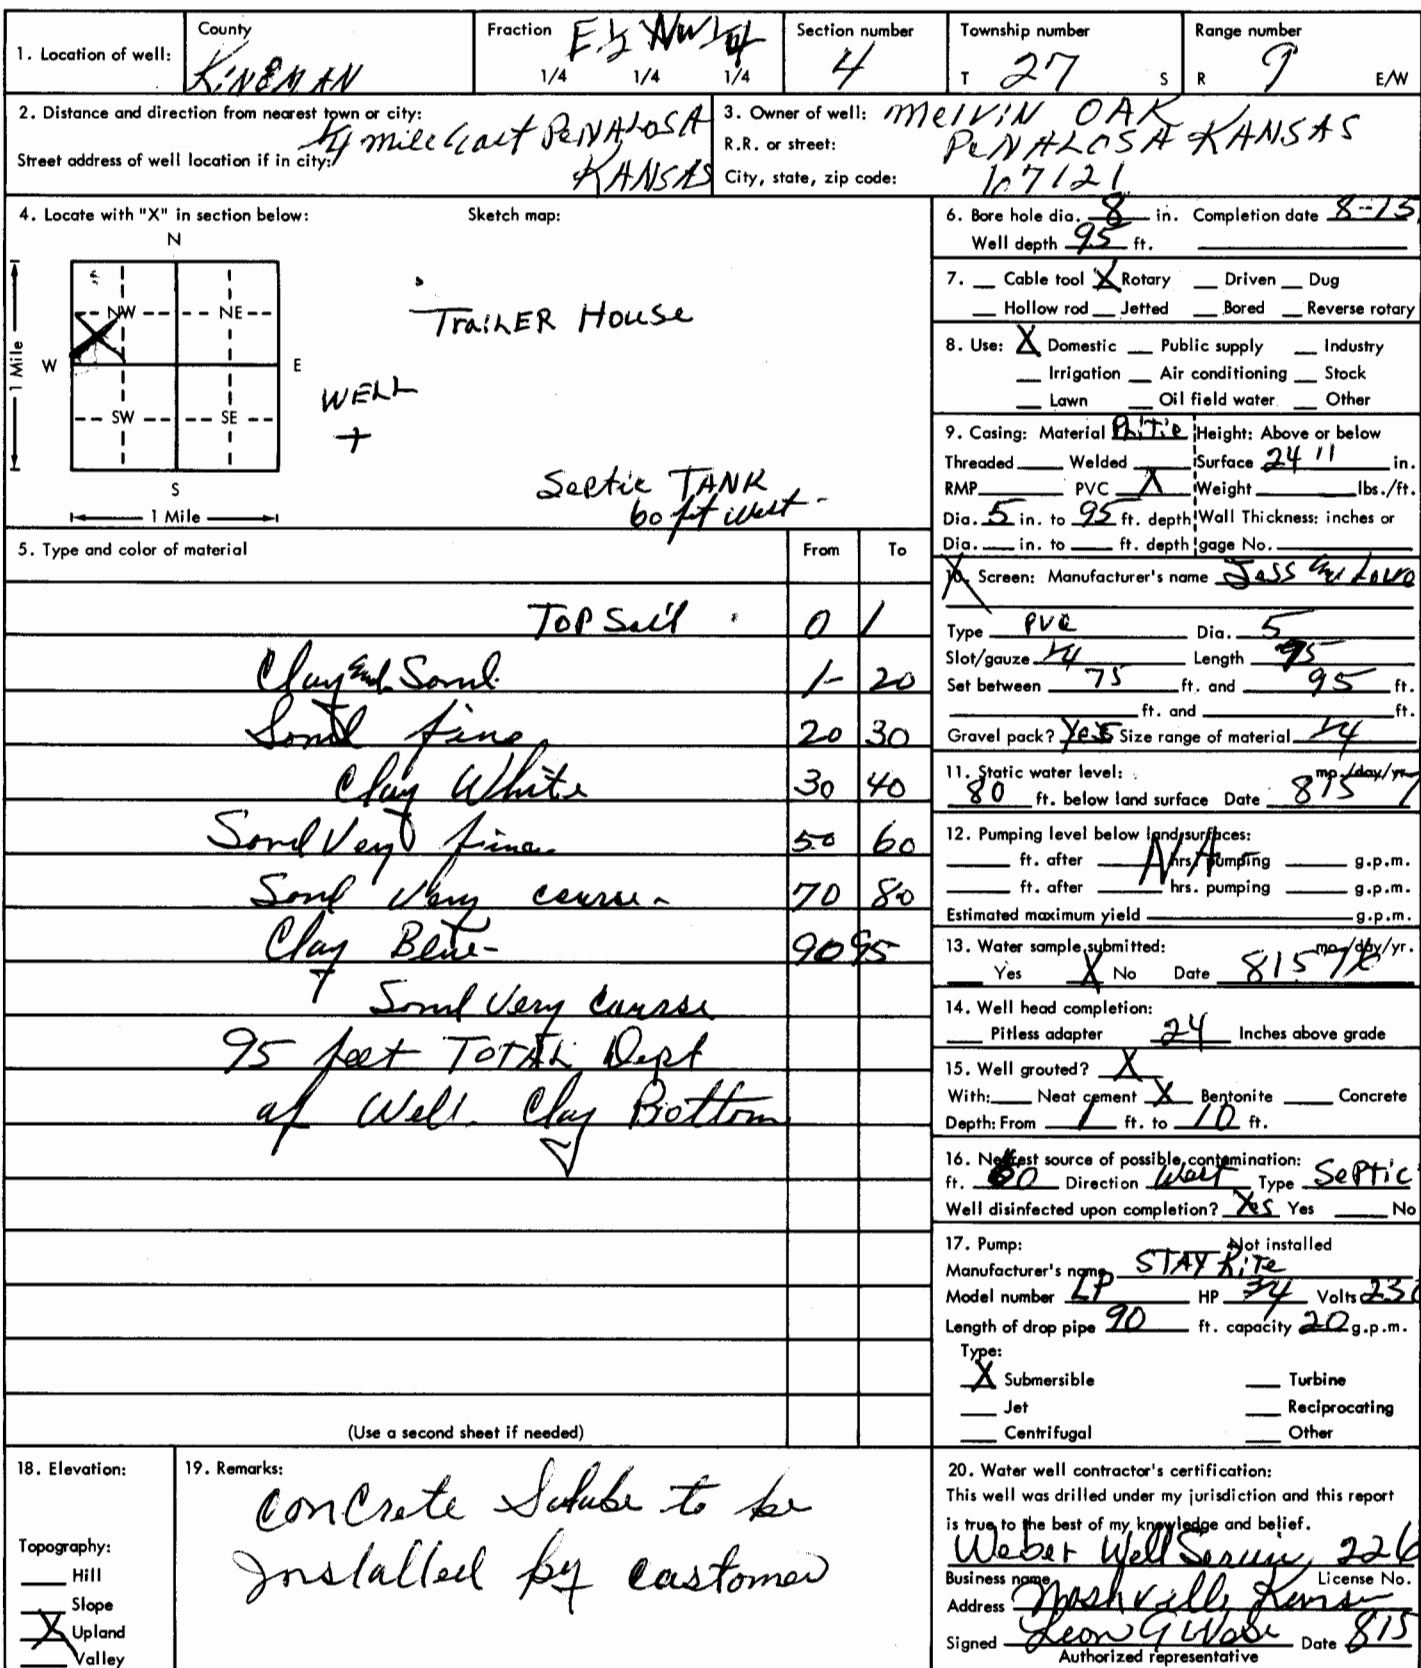 1. Location of well:
County
KiNEMAN
Fraction E½ NW ¼
1/4 1/4 1/4
Section number
4
Township number
T 27 S
Range number
R 9 E/W
2. Distance and direction from nearest town or city:
¼ mile East PeNALOSA
Street address of well location if in city:
KANSAS
3. Owner of well: MelViN OAK
R.R. or street: PeNALOSA KANSAS
City, state, zip code: 67121
4. Locate with "X" in section below:
Sketch map:
N
NW NE
W E
SW SE
S
1 Mile
1 Mile
TraiLER House
WELL
+
Septic TANK
60 ft West -
5. Type and color of material From To
Top Soil 0 1
Clay and Sand 1- 20
Sand fine 20 30
Clay White 30 40
Sand Very fine 50 60
Sand Very course - 70 80
Clay Blue - 90 95
Sand Very course
95 feet TOTAL Dept
of Well. Clay Bottom
(Use a second sheet if needed)
6. Bore hole dia. 8 in. Completion date 8-15
Well depth 95 ft.
7. Cable tool X Rotary Driven Dug
Hollow rod Jetted Bored Reverse rotary
8. Use: X Domestic Public supply Industry
Irrigation Air conditioning Stock
Lawn Oil field water Other
9. Casing: Material Height: Above or below
Threaded Welded Surface 24 " in.
RMP PVC X Weight lbs./ft.
Dia. 5 in. to 95 ft. depth Wall Thickness: inches or
Dia. in. to ft. depth gage No.
10. Screen: Manufacturer's name Jess
Type PVC Dia. 5
Slot/gauze ¼ Length
Set between 75 ft. and 95 ft.
ft. and ft.
Gravel pack? Yes Size range of material ¼
11. Static water level: mo./day/yr.
80 ft. below land surface Date 8 15 7
12. Pumping level below land surfaces:
ft. after hrs. pumping g.p.m.
NA
ft. after hrs. pumping g.p.m.
Estimated maximum yield g.p.m.
13. Water sample submitted: mo./day/yr.
Yes X No Date 8 15 76
14. Well head completion:
Pitless adapter 24 Inches above grade
15. Well grouted? X
With: Neat cement X Bentonite Concrete
Depth: From 1 ft. to 10 ft.
16. Nearest source of possible contamination:
ft. 60 Direction West Type SePTic
Well disinfected upon completion? Yes Yes No
17. Pump: Not installed
Manufacturer's name STAY RiTe
Model number LP HP 3/4 Volts 230
Length of drop pipe 90 ft. capacity 20 g.p.m.
Type:
X Submersible Turbine
Jet Reciprocating
Centrifugal Other
18. Elevation:
Topography:
Hill
Slope
X Upland
Valley
19. Remarks:
Concrete to be
Installed by customer
20. Water well contractor's certification:
This well was drilled under my jurisdiction and this report
is true to the best of my knowledge and belief.
Weber Well Service 226
Business name License No.
Address Nashville
Signed Leon G Weber Date 815
Authorized representative